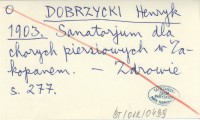 O DOBRZYCKI Henryk
1903. Sanatorjum dla
chorych piersiowych w Za-
kopanem. – Zdrowie
s. 277.